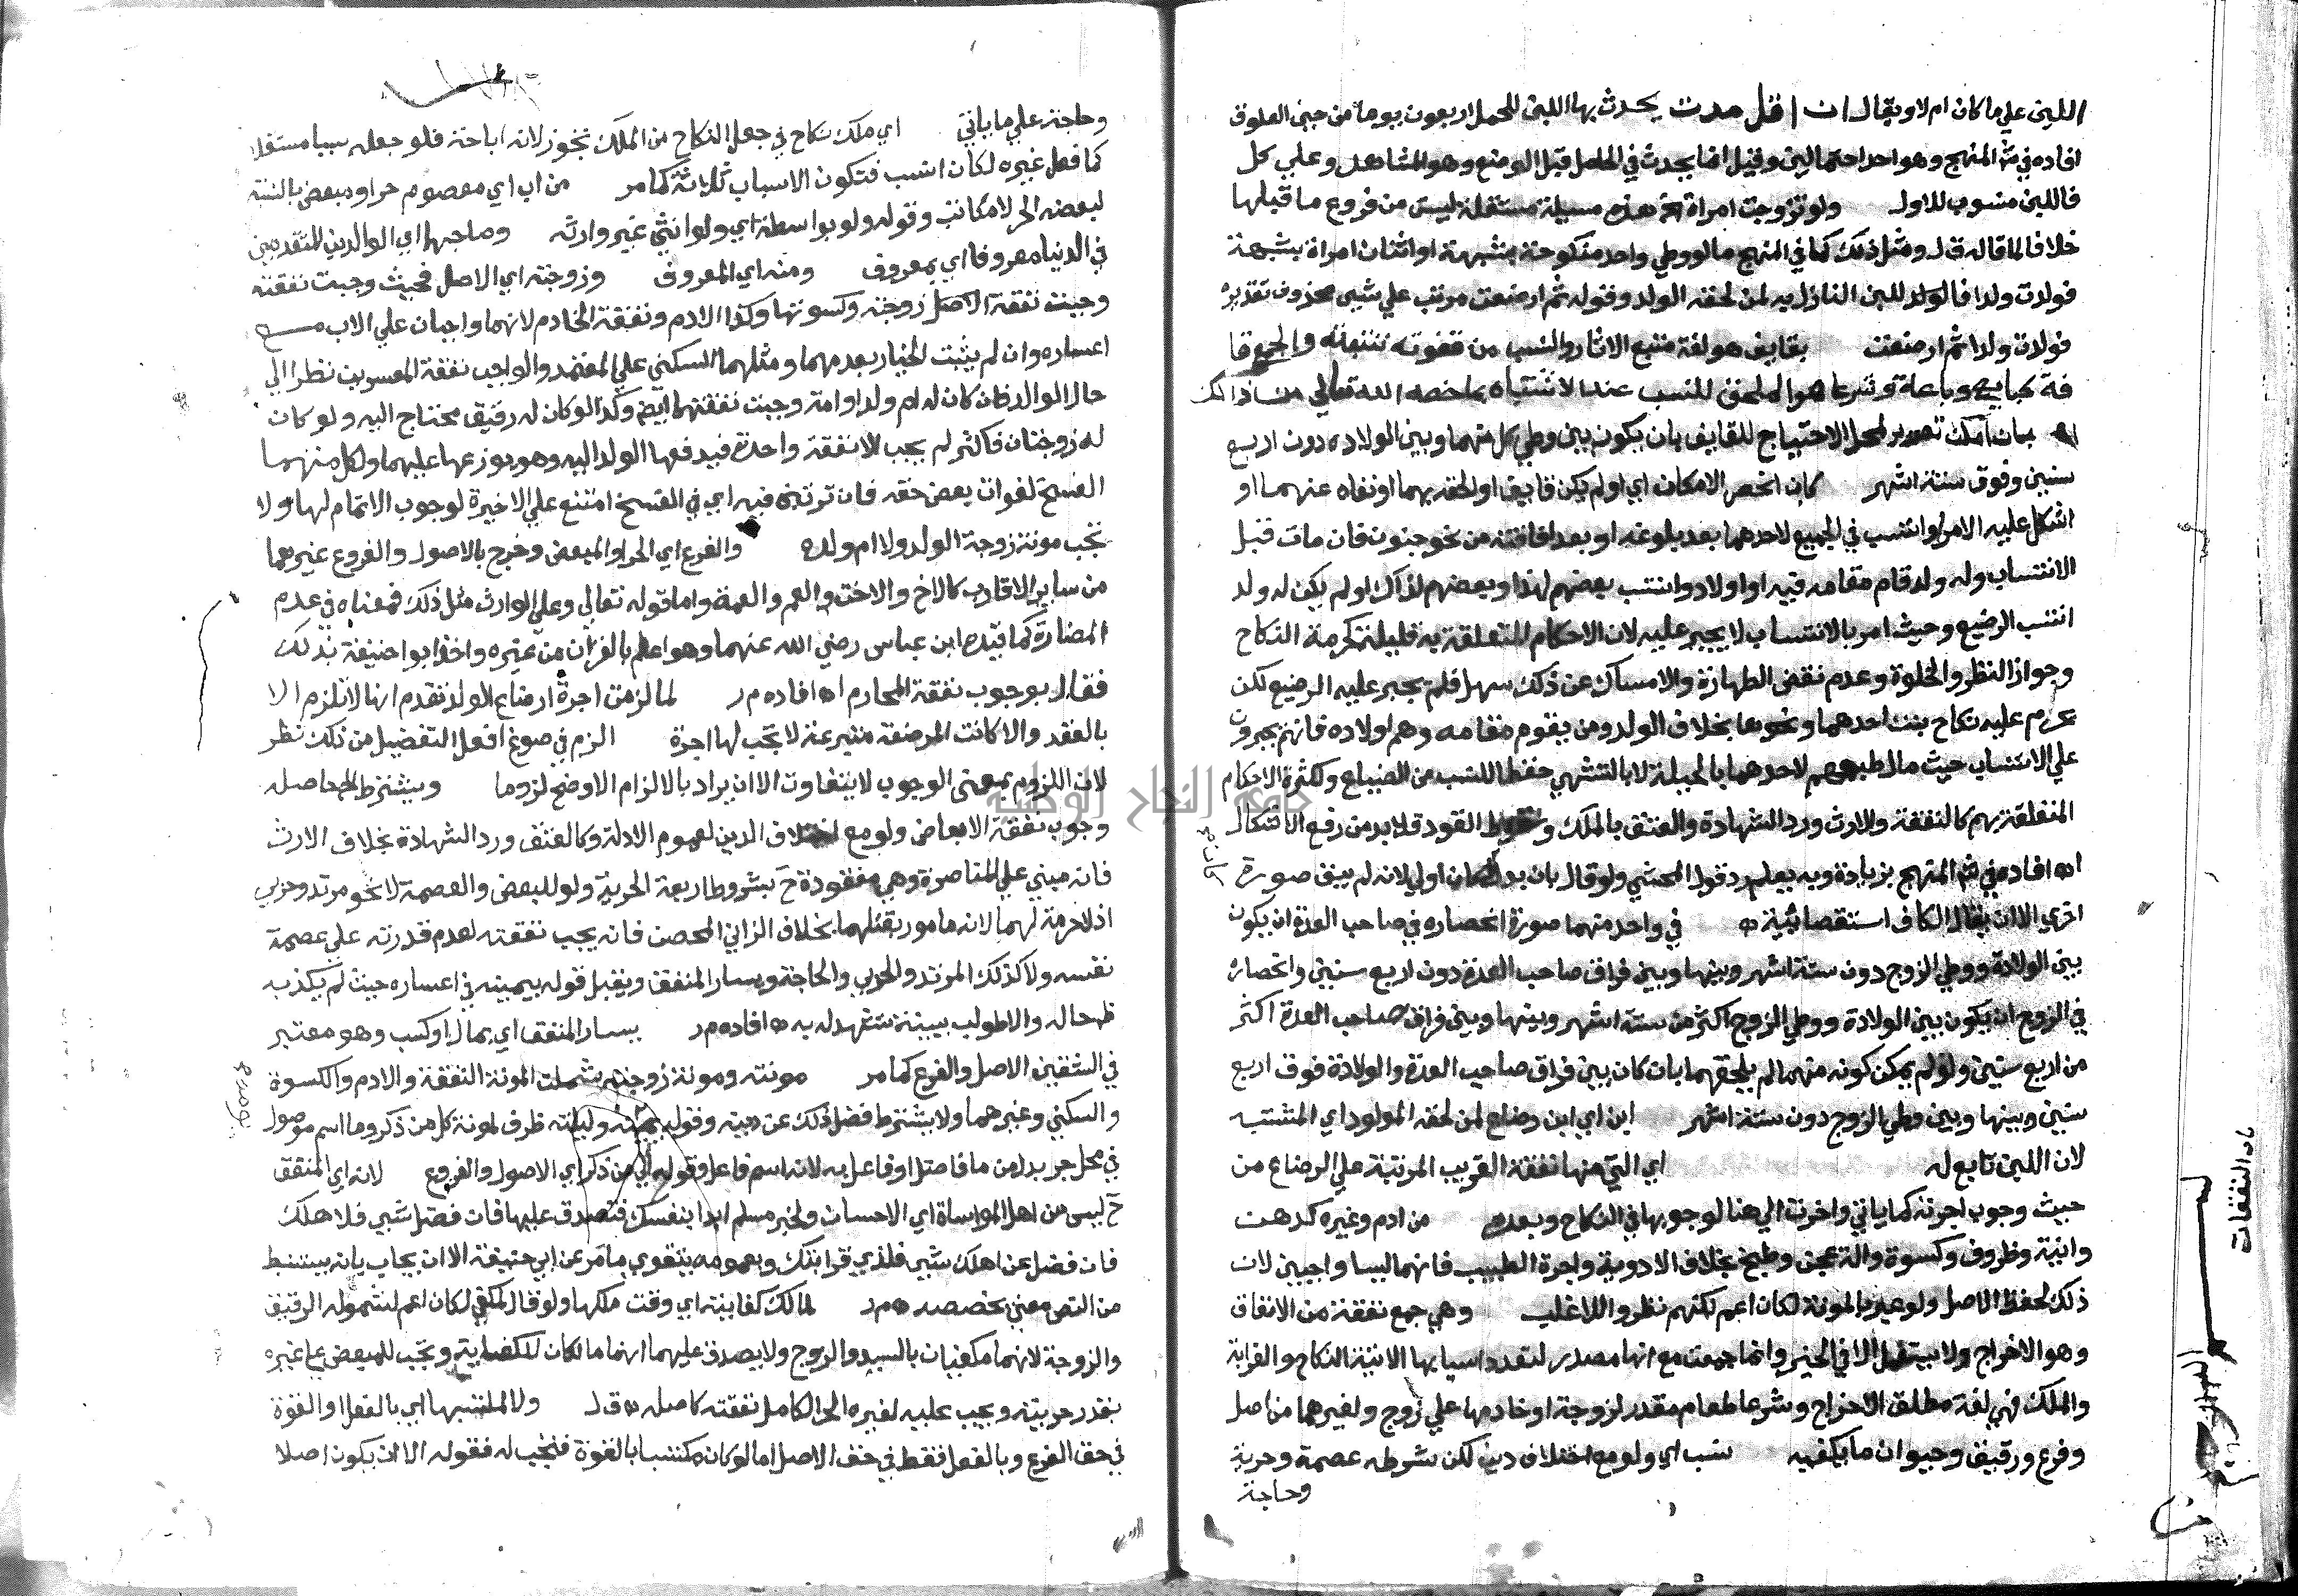 اللبن علي ما كان ام لا ويقال ان اقل مدت يحدث بها اللبن للحمل اربعون يوما من حين العلوق
افاده في ش المنهج وهو احد احتمالين وقيل انما يحدث في الحامل قبل الوضع وهو المشاهد وعلي كل
فاللبن منسوب للاول ولو تزوجت امراة الخ هذه مسيلة مستقلة ليس من فروع ما قبلها
خلافا لما قاله ق ل ومثل ذلك كما في المنهج ما لو وطي واحد منكوحة بشبهة او اثنان امراة بشبهة
فولدت ولدا فالولد للبن النازل به لمن لحقه الولد وقوله ثم ارضعت مرتب علي شيي محذوف تقديره
فولدت ولدا ثم ارضعت بقايف هو لغة متتبع الاثار والشبه من قفوته تتبعته والجمع قا
فة كبايع وباعة وشرعا هو الملحق للنسب عند الاشتباه بما خصه الله تعالي من
بان امكن تصوير لمحل الاحتياج للقايف بان يكون بين وطي كل منهما وبين الولاده دون اربع
سنين وفوق ستة اشهر كان انحصر الامكان اي او لم يكن قايف او الحقه بهما او نفاه عنهما او
اشكل عليه الامر وانتسب في الجميع لاحدهما بعد بلوغه او بعد افاقته من نحو جنون فان مات قبل
الانتساب وله ولد قام مقامه فيه او اولاد وانتسب بعضهم لهذا وبعضهم لذاك او لم يكن له ولد
انتسب الرضيع وحيث امر بالانتساب لا يجبر عليه لان الاحكام المتعلقة به قليلة كحرمة النكاح
وجواز النظر والخلوة وعدم نقض الطهارة والامساك عن ذلك سهل فلم يجبر عليه الرضيع لكن
يحرم عليه نكاح بنت احدهما ونحوها بخلاف الولد ومن يقوم مقامه وهم اولاده فانهم يجبرون
علي الانتساب حيث مال طبعهم لاحدهما بالجبلة لا بالتشهي حفظا للنسب من الضياع ولكثرة الاحكام
المتعلقة بهم كالنفقة والارث ورد الشهادة والعتق بالملك وسقوط القود فلا بد من رفع الاشكال
اه افاده في ش المنهج بزيادة وبه يعلم رد قول المحشي ولو قال بان بدل كان اولي لانه لم يبق صورة
اخري الا ان يقال الكاف استقصائية اه في واحد منهما صورة انحصاره في صاحب العدة ان يكون
بين الولادة ووطي الزوج دون ستة اشهر وبينها وبين فراق صاحب العدة دون اربع سنين وانحصاره
في الزوج ان يكون بين الولادة ووطي الزوج اكثر من ستة اشهر وبينها وبين فراق صاحب العدة اكثر
من اربع سنين ولو لم يمكن كونه منهما لم يلحقهما بان كان بين فراق صاحب العدة والولادة فوق اربع
سنين وبينها وبين وطي الزوج دون ستة اشهر ابن اي ابن رضاع لمن لحقه المولود اي المنتسب
لان اللبن تابع له اي التي منها نفقة القريب المرتبة علي الرضاع من
حيث وجوب اجرته كما ياتي واخرت الي هنا لوجوبها في النكاح وبعده من ادم وغيره كدهن
وانية وظروف وكسوة والة عجن وطبخ بخلاف الادوية واجرة الطبيب فانهما ليسا واجبين لان
ذلك لحفظ الاصل ولو عبر بالمونة لكان اعم لكنهم نظروا للاغلب وهي جمع نفقة من الانفاق
وهو الاخراج ولا يستعمل الا في الخير وانما جمعت مع انها مصدر لتعدد اسبابها الاتية النكاح والقرابة
والملك فهي لغة مطلق الاخراج وشرعا طعام مقدر لزوجة او خادمها علي زوج ولغيرهما من اصل
وفرع ورقيق وحيوان ما يكفيه نسب اي ولو مع اختلاف دين لكن بشرطه عصمة وحرية
وحاجة
باب النفقات
وحاجة علي ما ياتي اي ملك نكاح في جعل النكاح من الملك تجوز لانه اباحة فلو جعله سببا مستقلا
كما فعل غيره لكان انسب فتكون الاسباب ثلاثة كما مر من اب اي معصوم حر او مبعض بالنسبة
لبعضه الحر لا مكاتب وقوله ولو بواسطة اي ولو انثي غير وارثه وصاحبهما اي الوالدين المتقدمين
في الدنيا معروفا اي بمعروف ومنه اي المعروف وزوجته اي الاصل فحيث وجبت نفقته
وجبت نفقة الاصل زوجته وكسوتها وكذا الادم ونفقة الخادم لانهما واجبان علي الاب مع
اعساره وان لم يثبت الخيار بعدمهما ومثلهما السكني علي المعتمد والواجب نفقة المعسرين نظرا الي
حال الوالد فان كان له ام ولد او امة وجبت نفقتهما ايض وكذا لو كان له رقيق محتاج اليه ولو كان
له زوجتان فاكثر لم يجب الا نفقة واحدة فيدفعها الولد اليه وهو يوزعها عليهما ولكل منهما
الفسخ لفوات بعض حقه فان ترتبن فيه اي في الفسخ امتنع علي الاخيرة لوجوب الاتمام لها ولا
تجب مونة زوجة الولد ولا ام ولده والفرع اي الحر او المبعض وخرج بالاصول والفروع غيرهما
من ساير الاقارب كالاخ والاخت والعم والعمة واما قوله تعالي وعلي الوارث مثل ذلك فمعناه في عدم
المضارة كما قيده ابن عباس رضي الله عنهما وهو اعلم بالقران من غيره واخذ ابو احنيفة بذلك
فقال بوجوب نفقة المحارم اه افاده م ر لما لزمت اجرة ارضاع الولد تقدم انها لا تلزم الا
بالعقد والا كانت المرضعة متبرعة لا تجب لها اجرة الزم في صوغ افعل التفضيل من ذلك نظر
لان اللزوم بمعني الوجوب لا يتفاوت الا ان يراد بالالزام الاوضح لزوما ويشترط الخ حاصله
وجوب نفقة الابعاض ولو مع اختلاف الدين لعموم الادلة وكالعتق ورد الشهادة بخلاف الارث
فانه مبني علي المناصرة وهي مفقودة ح بشروط اربعة الحرية ولو للبعض والعصمة لا نحو مرتد وحربي
اذ لا حرمة لهما لانه مامور بقتلهما بخلاف الزاني المحصن فانه يجب نفقته لعدم قدرته علي عصمة
نفسه ولا كذلك المرتد والحربي والحاجة ويسار المنفق ويقبل قوله بيمينه في اعساره حيث لم يكذبه
ظ حاله والا طولب ببينة تشهد له به اه افاده م ر يسار المنفق اي بمال او كسب وهو معتبر
في الشقين الاصل والفرع كما مر مونته ومونة زوجته شملت المونة النفقة والادم والكسوة
والسكني وغيرهما ولا يشترط فضل ذلك عن دينه وقوله يومه وليلته ظرف لمونة كل من ذكر وما اسم موصول
في محل جر بدل من ما فاصل او فاعل به لانه اسم فاعل وقوله الي من ذكر اي الاصول والفروع لانه اي المنفق
ح ليس من اهل المواساة اي الاحسان ولخبر مسلم ابدا بنفسك فتصدق عليها فان فضل شيي فلاهلك
فان فضل عن اهلك شيي فلذي قرابتك وبعمومه يتقوي ما مر عن ابي حنيفة الا ان يجاب بانه يستنبط
من النص معني يخصصه اه م ر لمالك كفايته اي وقت ملكها ولو قال لمكفي لكان اعم لشموله الرقيق
والزوجة لانهما مكفيان بالسيد والزوج ولا يصدق عليهما انهما مالكان للكفاية وتجب للمبعض علي غيره
بقدر حريته ويجب عليه لغيره الحر الكامل نفقته كاملة اه ق ل ولا المكتسبها اي بالفعل او القوة
في حق الفرع وبالفعل فقط في حق الاصل اما لو كان مكتسبا بالقوة فتجب له فقوله الا ان يكون اصلا
جامعة النجاح الوطنية